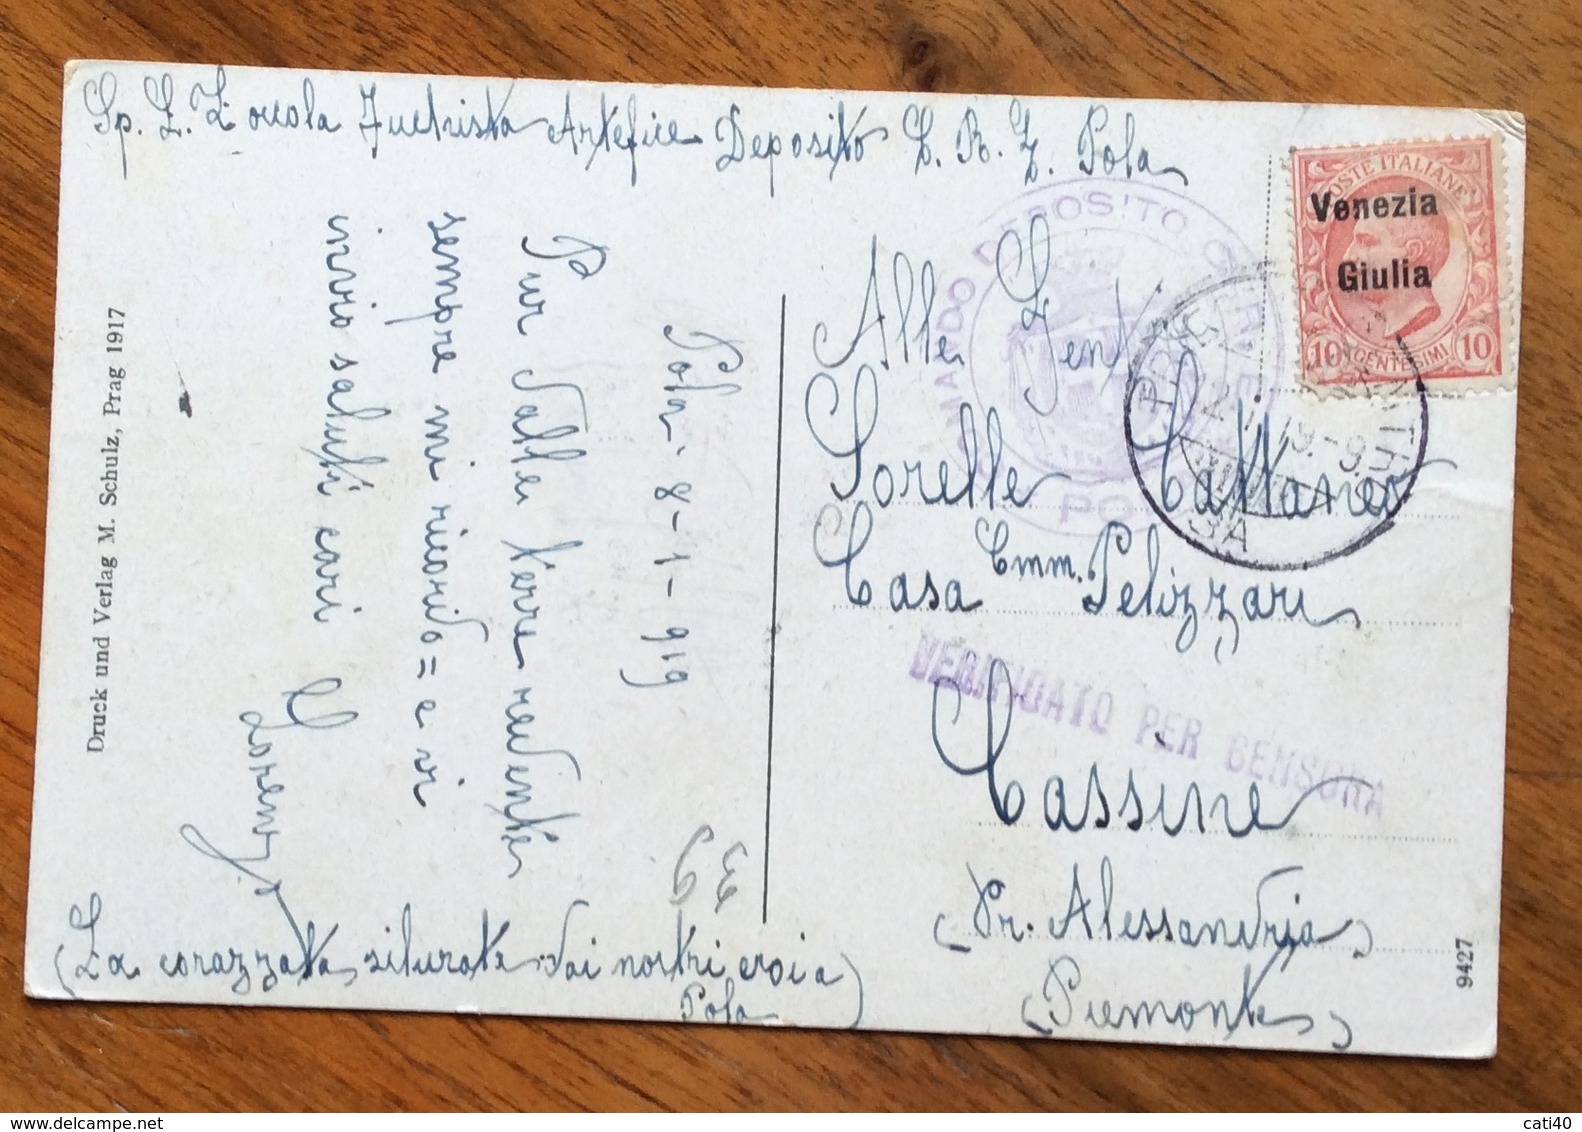 Sp. L. Zoccola Fuchista Artefice Deposito C. R. E. Pola
POSTE ITALIANE
Venezia
Giulia
10 CENTESIMI 10
COMANDO DEPOSITO
Alle Gent.
Sorelle Cattaneo
Casa Comm. Pelizzari
VERIFICATO PER CENSURA
Cassine
(Pr. Alessandria)
(Piemonte)
9427
Pola - 8-1-919
Pur dalle terre redente
sempre mi ricordo = e vi
invio saluti cari
Lorenzo
39
(La corazzata silurata dai nostri eroi a
Pola)
Druck und Verlag M. Schulz, Prag 1917
cati40